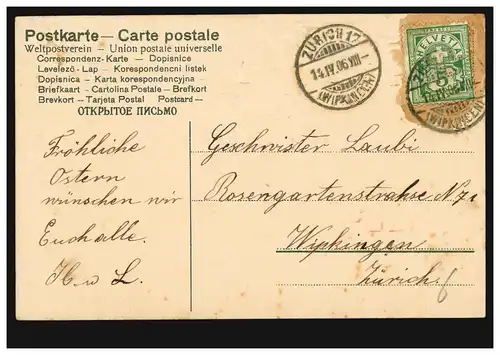 Postkarte — Carte postale
Weltpostverein — Union postale universelle
Correspondenz-Karte — Dopisnice
Levelező-Lap — Korespondencni listek
Dopisnica — Karta korespondencyjna
Briefkaart — Cartolina Postale — Brefkort
Brevkort — Tarjeta Postal — Postcard —
ОТКРЫТОЕ ПИСЬМО
ZÜRICH 17
14.IV.06.VIII
(WIPKINGEN)
HELVETIA
5
(WIPKINGEN)
Fröhliche
Ostern
wünschen wir
Euch alle.
H. u L.
Geschwister Laubi
Rosengartenstrahse N 71
Wipkingen
Zürich